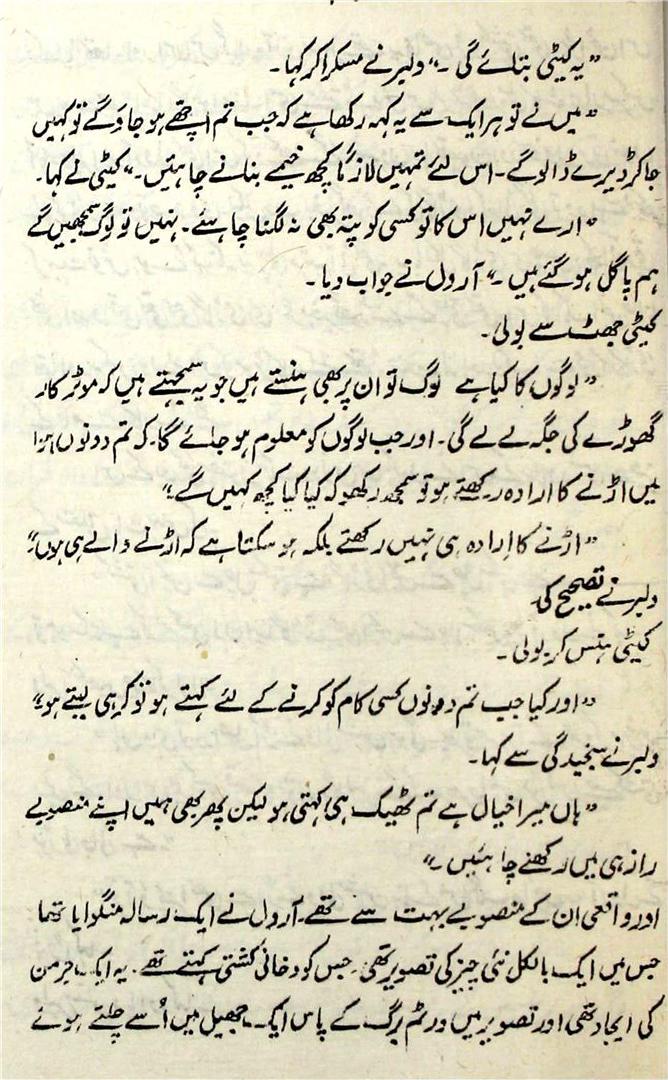 ”یہ کیٹی بتائے گی۔“ ولبر نے مسکرا کر کہا۔
”میں نے تو ہر ایک سے یہ کہہ رکھا ہے کہ جب تم اچھے ہو جاوگے تو کہیں
جا کر ڈیرے ڈالوگے۔ اس لئے تمہیں لازماً کچھ خیمے بنانے چاہئیں۔“ کیٹی نے کہا۔
”ارے نہیں اس کا تو کسی کو پتہ بھی نہ لگنا چاہئے۔ نہیں تو لوگ سمجھیں گے
ہم پاگل ہو گئے ہیں۔“ آرول نے جواب دیا۔
کیٹی جھٹ سے بولی۔
”لوگوں کا کیا ہے لوگ تو ان پر بھی ہنستے ہیں جو یہ سمجھتے ہیں کہ موٹر کار
گھوڑے کی جگہ لے لے گی۔ اور جب لوگوں کو معلوم ہو جائے گا۔ کہ تم دونوں ہوا
میں اڑنے کا ارادہ رکھتے ہو تو سمجھ رکھو کہ کیا کیا کچھ کہیں گے“
”اڑنے کا اِرادہ ہی نہیں رکھتے بلکہ ہو سکتا ہے کہ اڑنے والے ہی ہوں“
ولبر نے تصحیح کی
کیٹی ہنس کر بولی۔
”اور کیا جب تم دونوں کسی کام کو کرنے کے لئے کہتے ہو تو کر ہی لیتے ہو“
ولبر نے سنجیدگی سے کہا۔
”ہاں میرا خیال ہے تم ٹھیک ہی کہتی ہو لیکن پھر بھی ہمیں اپنے منصوبے
راز ہی میں رکھنے چاہئیں۔“
اور واقعی ان کے منصوبے بہت سے تھے۔ آرول نے ایک رسالہ منگوایا تھا
جس میں ایک بالکل نئی چیز کی تصویر تھی۔ جس کو دخانی کشتی کہتے تھے۔ یہ ایک جرمن
کی ایجاد تھی اور تصویر میں ورٹم برگ کے پاس ایک جھیل میں اُسے چلتے ہوئے